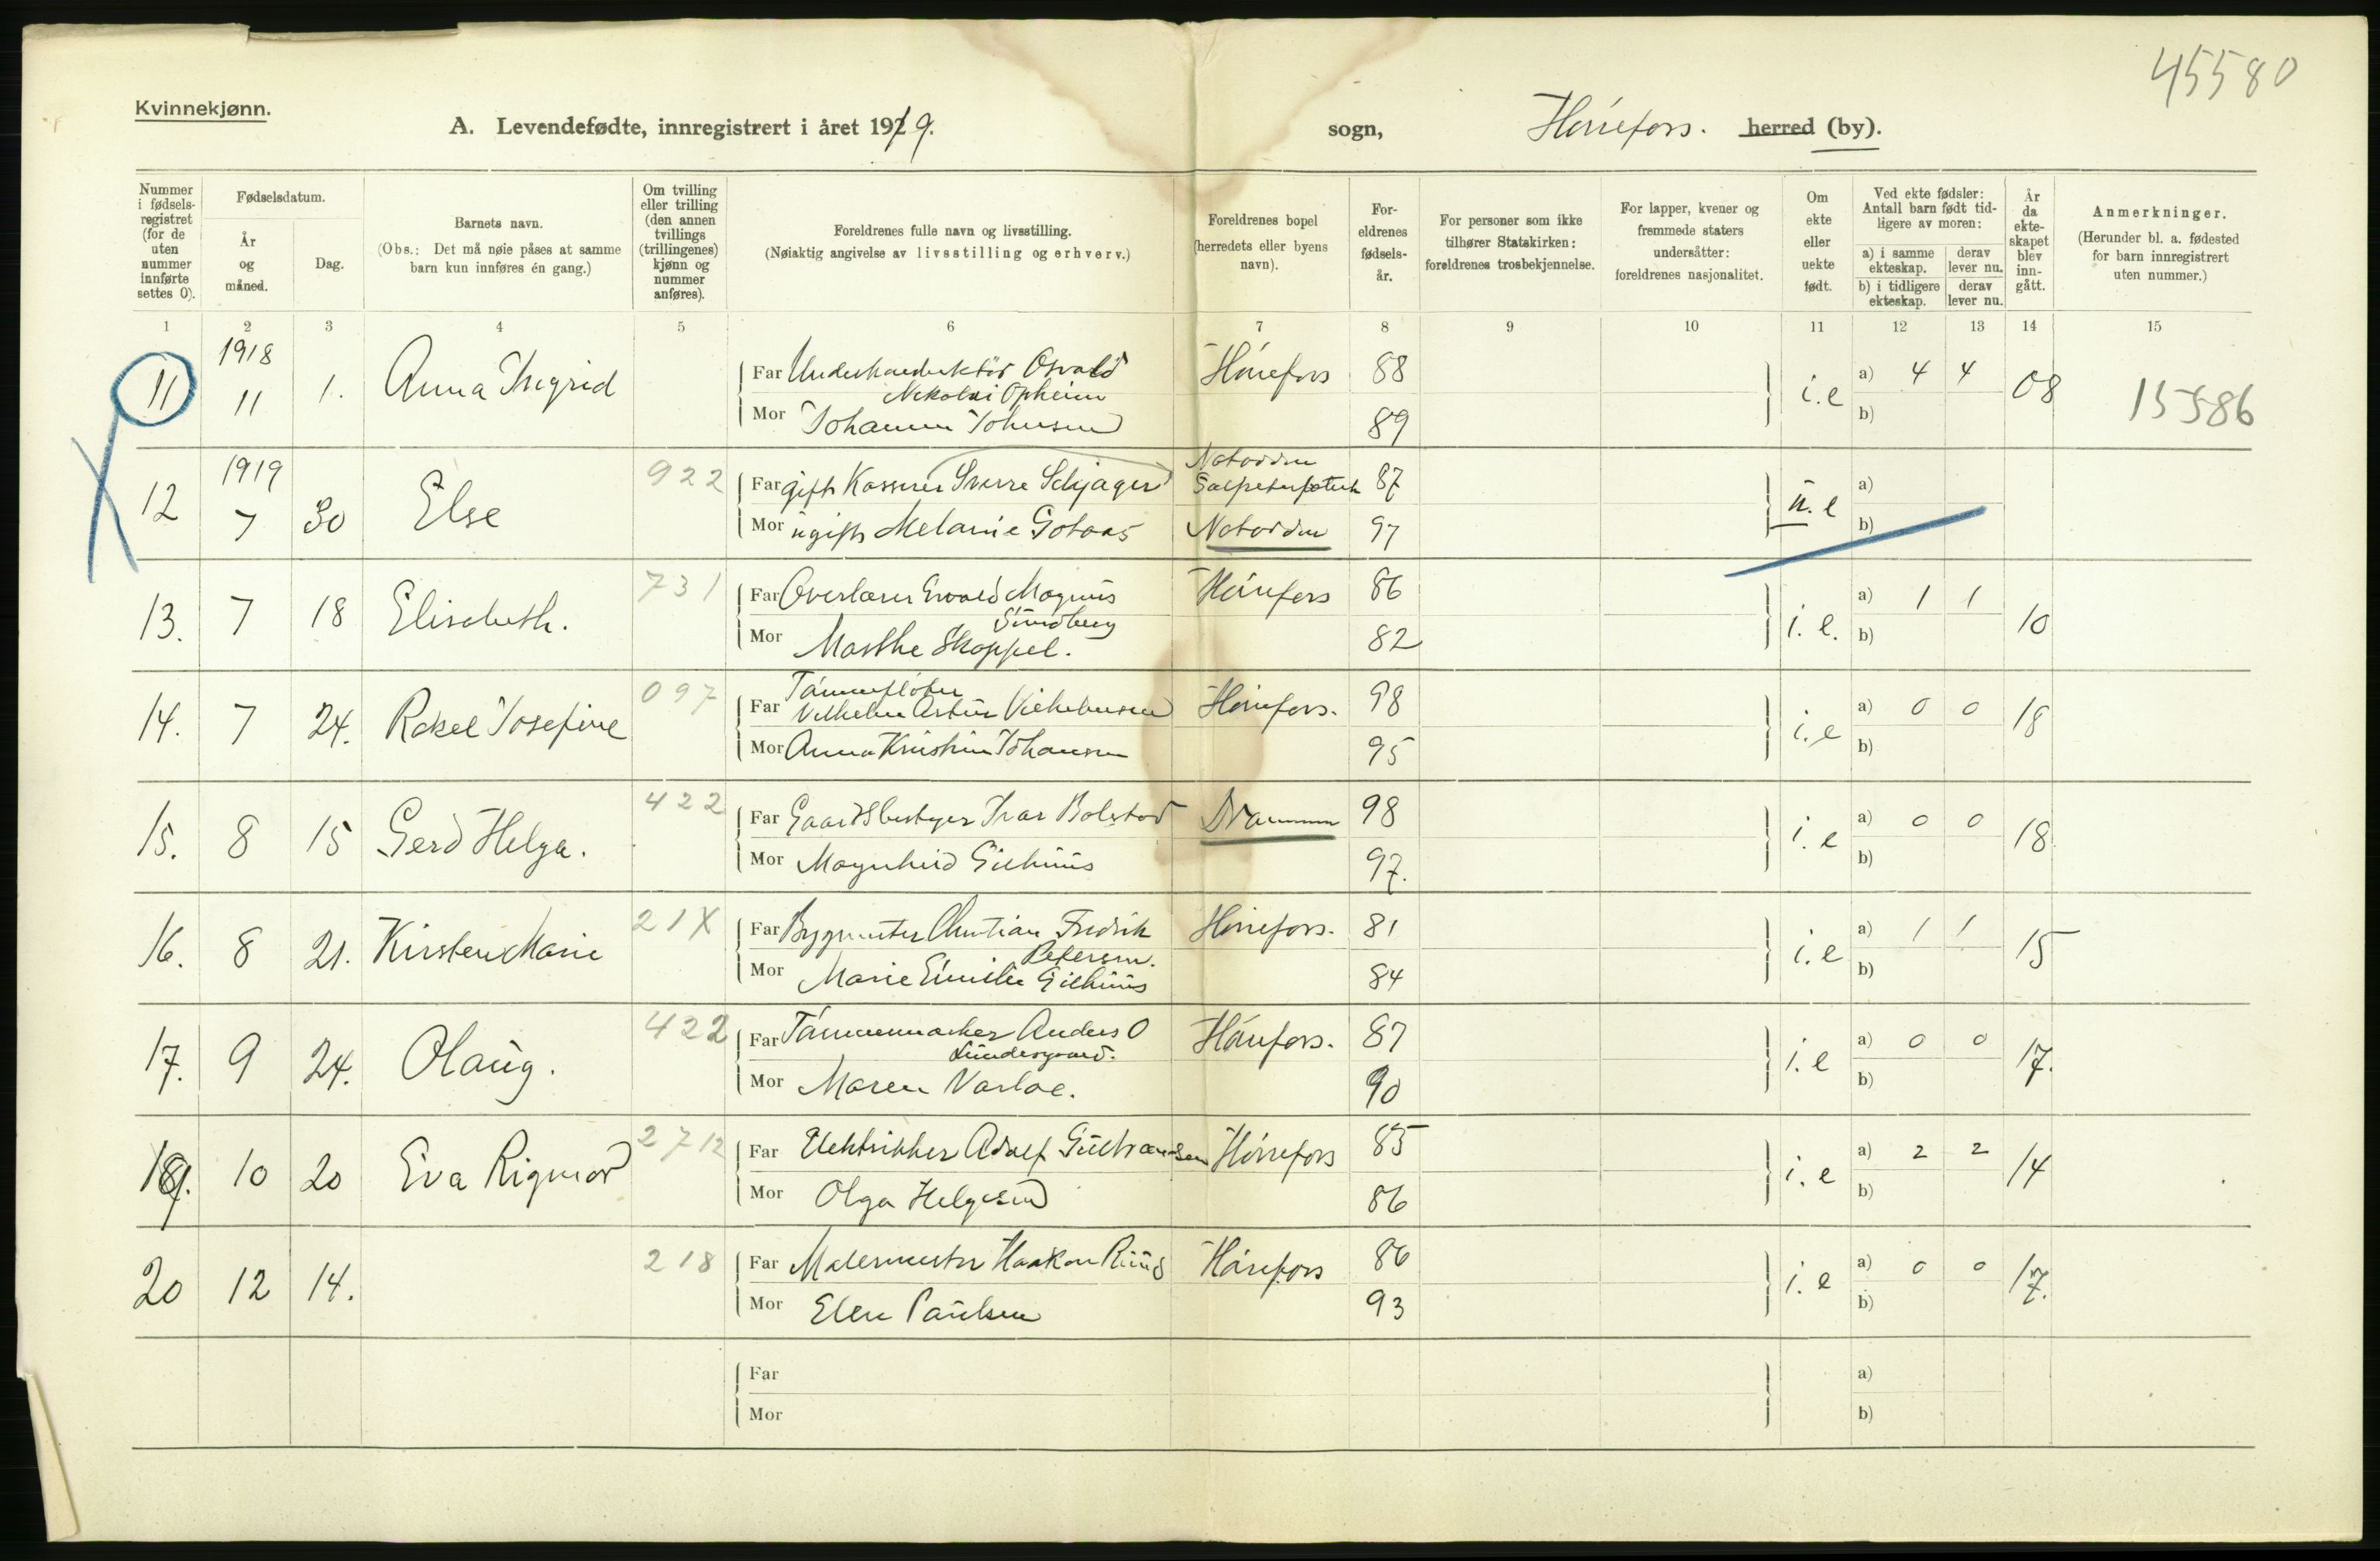 45580
Kvinnekjønn.
A. Levendefødte, innregistrert i året 1919. sogn, Hønefoss. herred (by).
Nummer i fødselsregistret (for de uten nummer innførte settes 0).
Fødselsdatum.
År og måned.
Dag.
Barnets navn.
(Obs.: Det må nøie påses at samme barn kun innføres én gang.)
Om tvilling eller trilling (den annen tvillings (trillingenes) kjønn og nummer anføres).
Foreldrenes fulle navn og livsstilling.
(Nøiaktig angivelse av livsstilling og erhverv.)
Foreldrenes bopel (herredets eller byens navn).
Foreldrenes fødselsår.
For personer som ikke tilhører Statskirken: foreldrenes trosbekjennelse.
For lapper, kvener og fremmede staters undersåtter: foreldrenes nasjonalitet.
Om ekte eller uekte født.
Ved ekte fødsler: Antall barn født tidligere av moren:
a) i samme ekteskap. derav lever nu.
b) i tidligere ekteskap. derav lever nu.
År da ekteskapet blev inngått.
Anmerkninger.
(Herunder bl. a. fødested for barn innregistrert uten nummer.)
1 2 3 4 5 6 7 8 9 10 11 12 13 14 15
1918
11 11 1. Anna Ingrid Far Underkonduktör Osvald Hönefoss 88 i.e a) 4 4 08 15586
Nikolai Opheim
Mor Johanne Johnsen 89 b)
1919
12 7 30 Else 922 Far gift Kasserer Sverre Schjager Notodden Salpeterfabrik 87 u.e a)
Mor ugift Melanie Gotaas Notodden 97 b)
13. 7 18 Elisabeth. 731 Far Overlærer Ewald Magnus Hönefoss 86 i.e. a) 1 1 10
Sundberg
Mor Marthe Skoppel. 82 b)
14. 7 24. Rakel Josefine 097 Far Tömmerflöter Hönefoss. 98 i.e a) 0 0 18
Vilhelm Artur Vilhelmsen
Mor Anna Kristine Johansen 95 b)
15. 8 15 Gerd Helga. 422 Far Gaardbestyrer Ivar Bolstad Drammen 98 i.e a) 0 0 18
Mor Magnhild Gilhuus 97. b)
16. 8 21. Kirsten Marie 21X Far Bygmester Christian Fredrik Hönefoss. 81 i.e a) 1 1 15
Petersen.
Mor Marie Emilie Gilhuus 84 b)
17. 9 24. Olaug. 422 Far Tömmermerker Anders O Hönefoss. 87 i.e a) 0 0 17.
Lundesgaard.
Mor Maren Varloe. 90 b)
19. 10 20 Eva Rigmor 2712 Far Elektrikker Adolf Gulbrandsen Hönefoss 85 i.e a) 2 2 14
Mor Olga Helgesen 86 b)
20 12 14. 218 Far Malermester Haakon Ruud Hönefoss 86 i.e a) 0 0 17.
Mor Elen Paulsen 93 b)
Far a)
Mor b)